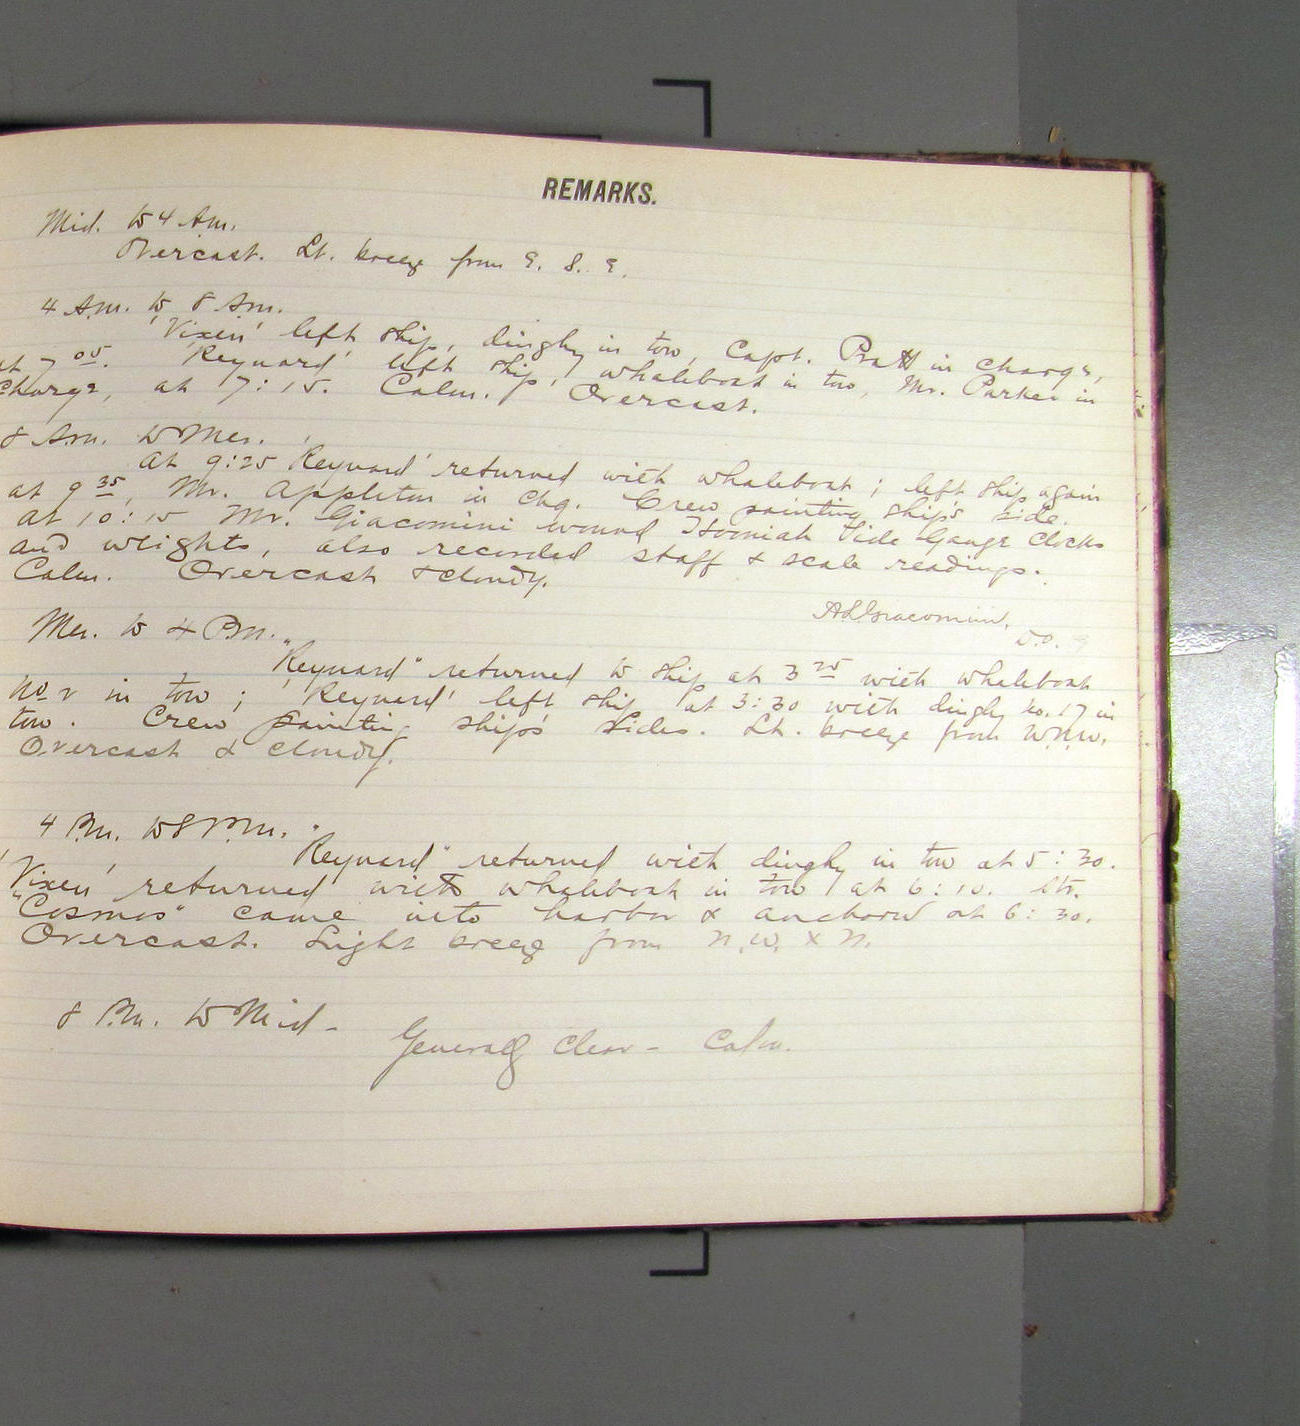 REMARKS.
Mid. to 4 Am.
Overcast. Lt. breeze from E. S. E.
4 A.m. to 8 Am.
'Vixen' left ship, dinghy in tow, Capt. Pratt in charge,
at 7 05. 'Reynard' left ship, whaleboat in tow, Mr. Parker in
charge, at 7:15. Calm. Overcast.
8 Am. to Mer.
At 9:25 'Reynard' returned with whaleboat; left ship again
at 9 35, Mr. Appleton in chg. Crew painting ship's side.
At 10:15 Mr. Giacomini wound Hooniah Tide Gauge Clocks
and weights, also recorded staff & scale readings.
Calm. Overcast & cloudy.
A.L. Giacomini,
D.O.
Mer. to 4 Pm.
"Reynard" returned to ship at 3 25 with whaleboat
No 2 in tow; 'Reynard' left ship at 3:30 with dinghy No. 17 in
tow. Crew painting ship's sides. Lt. breeze from W.N.W.
Overcast & cloudy.
4 P.m. to 8 P.m.
"Reynard" returned with dinghy in tow at 5:30.
'Vixen' returned with whaleboat in tow at 6:10. Str.
"Cosmos" came into harbor & anchored at 6:30.
Overcast. Light breeze from N.W. x N.
8 P.m. to Mid -
Generally clear - Calm.